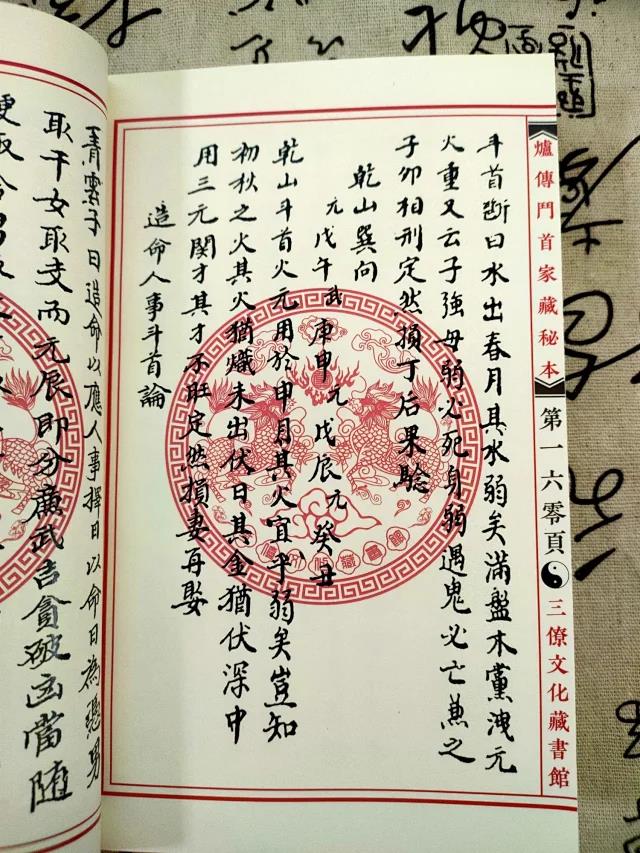 爐傳門首家藏秘本
第一六零頁
三僚文化藏書館
斗首断曰水出春月其水弱矣滿盤木黨洩元
火重又云子強母弱必死身弱遇鬼必亡兼之
子卯相刑定然損丁后果驗
乾山巽向
元戊午武庚申元戊辰元癸丑
乾山斗首火元用於申月其火宜乎弱矣豈知
初秋之火其火猶熾未出伏日其金猶伏深中
用三元関才其才不旺定然損妻再娶
造命人事斗首論
青雲子曰造命以應人事擇日以命日為憑男
取干女取支而元辰即分廉武吉貪破凶當随